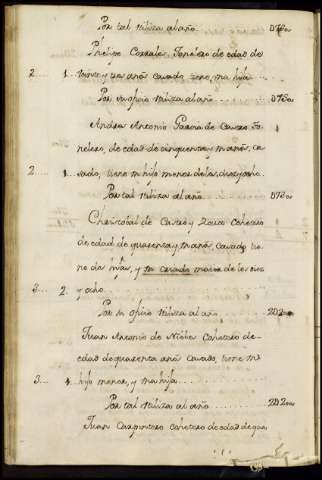 Por tal utiliza al año .. 078o
Phelipe Corrales, Tonelero de edad de
2... 1. treinta y tres años casado, tiene una hija
Por su oficio utiliza al año .. 078o
Andres Antonio Garcia de Castro To-
nelero, de edad de cinquenta y un años, ca-
2... 1. sado, tiene un hijo menor de los diez y ocho
Por tal utiliza al año ... 078o
Christobal de Castro y Cohetero
de edad de quarenta y un años, casado tie-
ne dos hijas, y un criado maior de los diez
3... 2. y ocho
Por su oficio utiliza al año ... 2D2oo
Juan Antonio de Cohetero de
edad de quarenta años Casado, tiene un
3... 1. hijo menor, y una hija
Por tal utiliza al año ... 2D2oo
Juan Carpintero cohetero de edad de qua